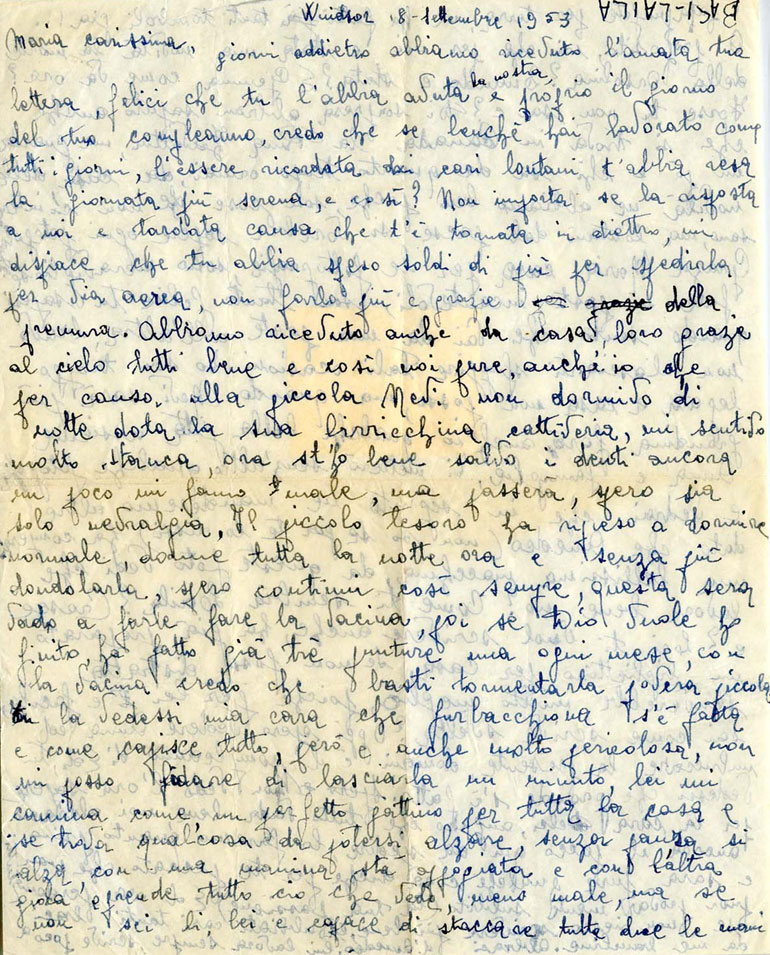 BAKI-LAILA
Windsor 18-settembre 1953
Maria carissima, giorni addietro abbiamo ricevuto l'amata tua
lettera, felici che tu l'abbia avuta la nostra, e proprio il giorno
del tuo compleanno, credo che se benchè hai lavorato come
tutti i giorni, l'essere ricordata dai cari lontani t'abbia resa
la giornata più serena, e così? Non importa se la risposta
a noi e tardata causa che t'è tornata in dietro, mi
dispiace che tu abbia speso soldi di più per spedirla
per via aerea, non farlo più e grazie grazie della
premura. Abbiamo ricevuto anche da casa, loro grazie
al cielo tutti bene e così noi pure, anch'io che
per causa alla piccola Nedi non dormivo di
notte data la sua birricchina cattiveria, mi sentivo
molto stanca, ora stò bene salvo i denti ancora
un poco mi fanno male, ma passerà, spero sia
solo nevralgia, Il piccolo tesoro ha ripreso a dormire
normale, dorme tutta la notte ora e senza più
dondolarla, spero continui così sempre, questa sera
vado a farle fare la vacina, poi se Dio vuole ho
finito, ha fatto già trè punture una ogni mese, con
la vacina credo che basti tormentarla povera piccola
la vedessi mia cara che furbacchiona s'è fatta
e come capisce tutto, però è anche molto pericolosa, non
mi posso fidare di lasciarla un minuto, lei mi
camina come un perfetto gattino per tutta la casa e
se trova qualcosa da potersi alzare, senza paura si
alza, con una manina stà appogiata e con l'altra
gioca, e prende tutto ciò che vede, meno male, ma se
non sei li lei e capace di staccare tutte due le mani